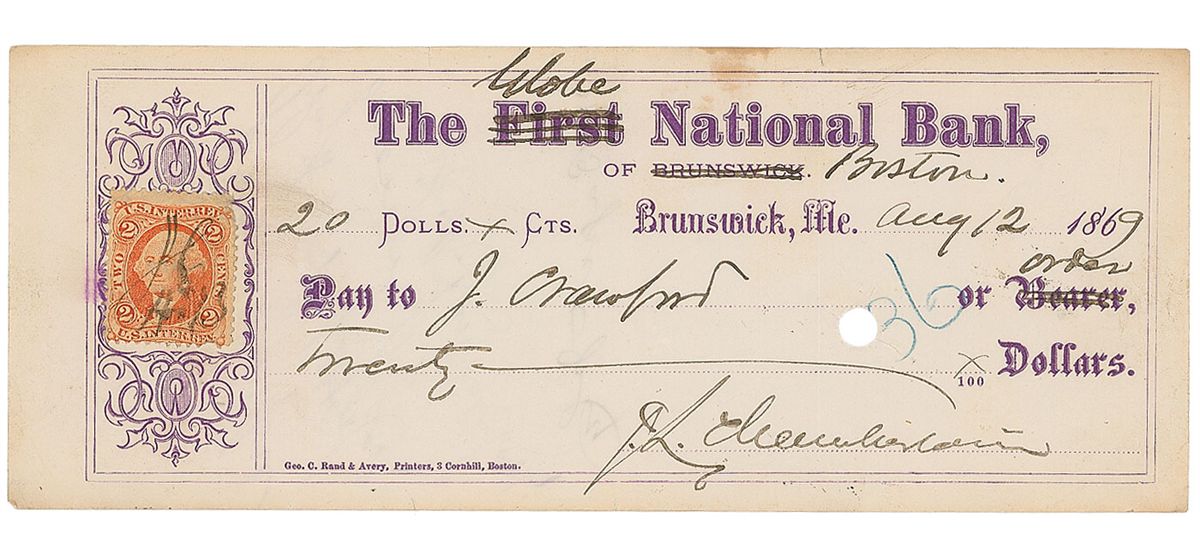 Globe
The First National Bank,
OF BRUNSWICK. Boston.
20 DOLLS. x CTS. Brunswick, Me. Aug 12 1869
order
Pay to J. Crawford or Bearer,
36
Twenty x/100 Dollars.
J. L. Chamberlain
Geo. C. Rand & Avery, Printers, 3 Cornhill, Boston.
U.S. INTER. REV.
2 2
TWO CENTS
2 2
U.S. INTER. REV.